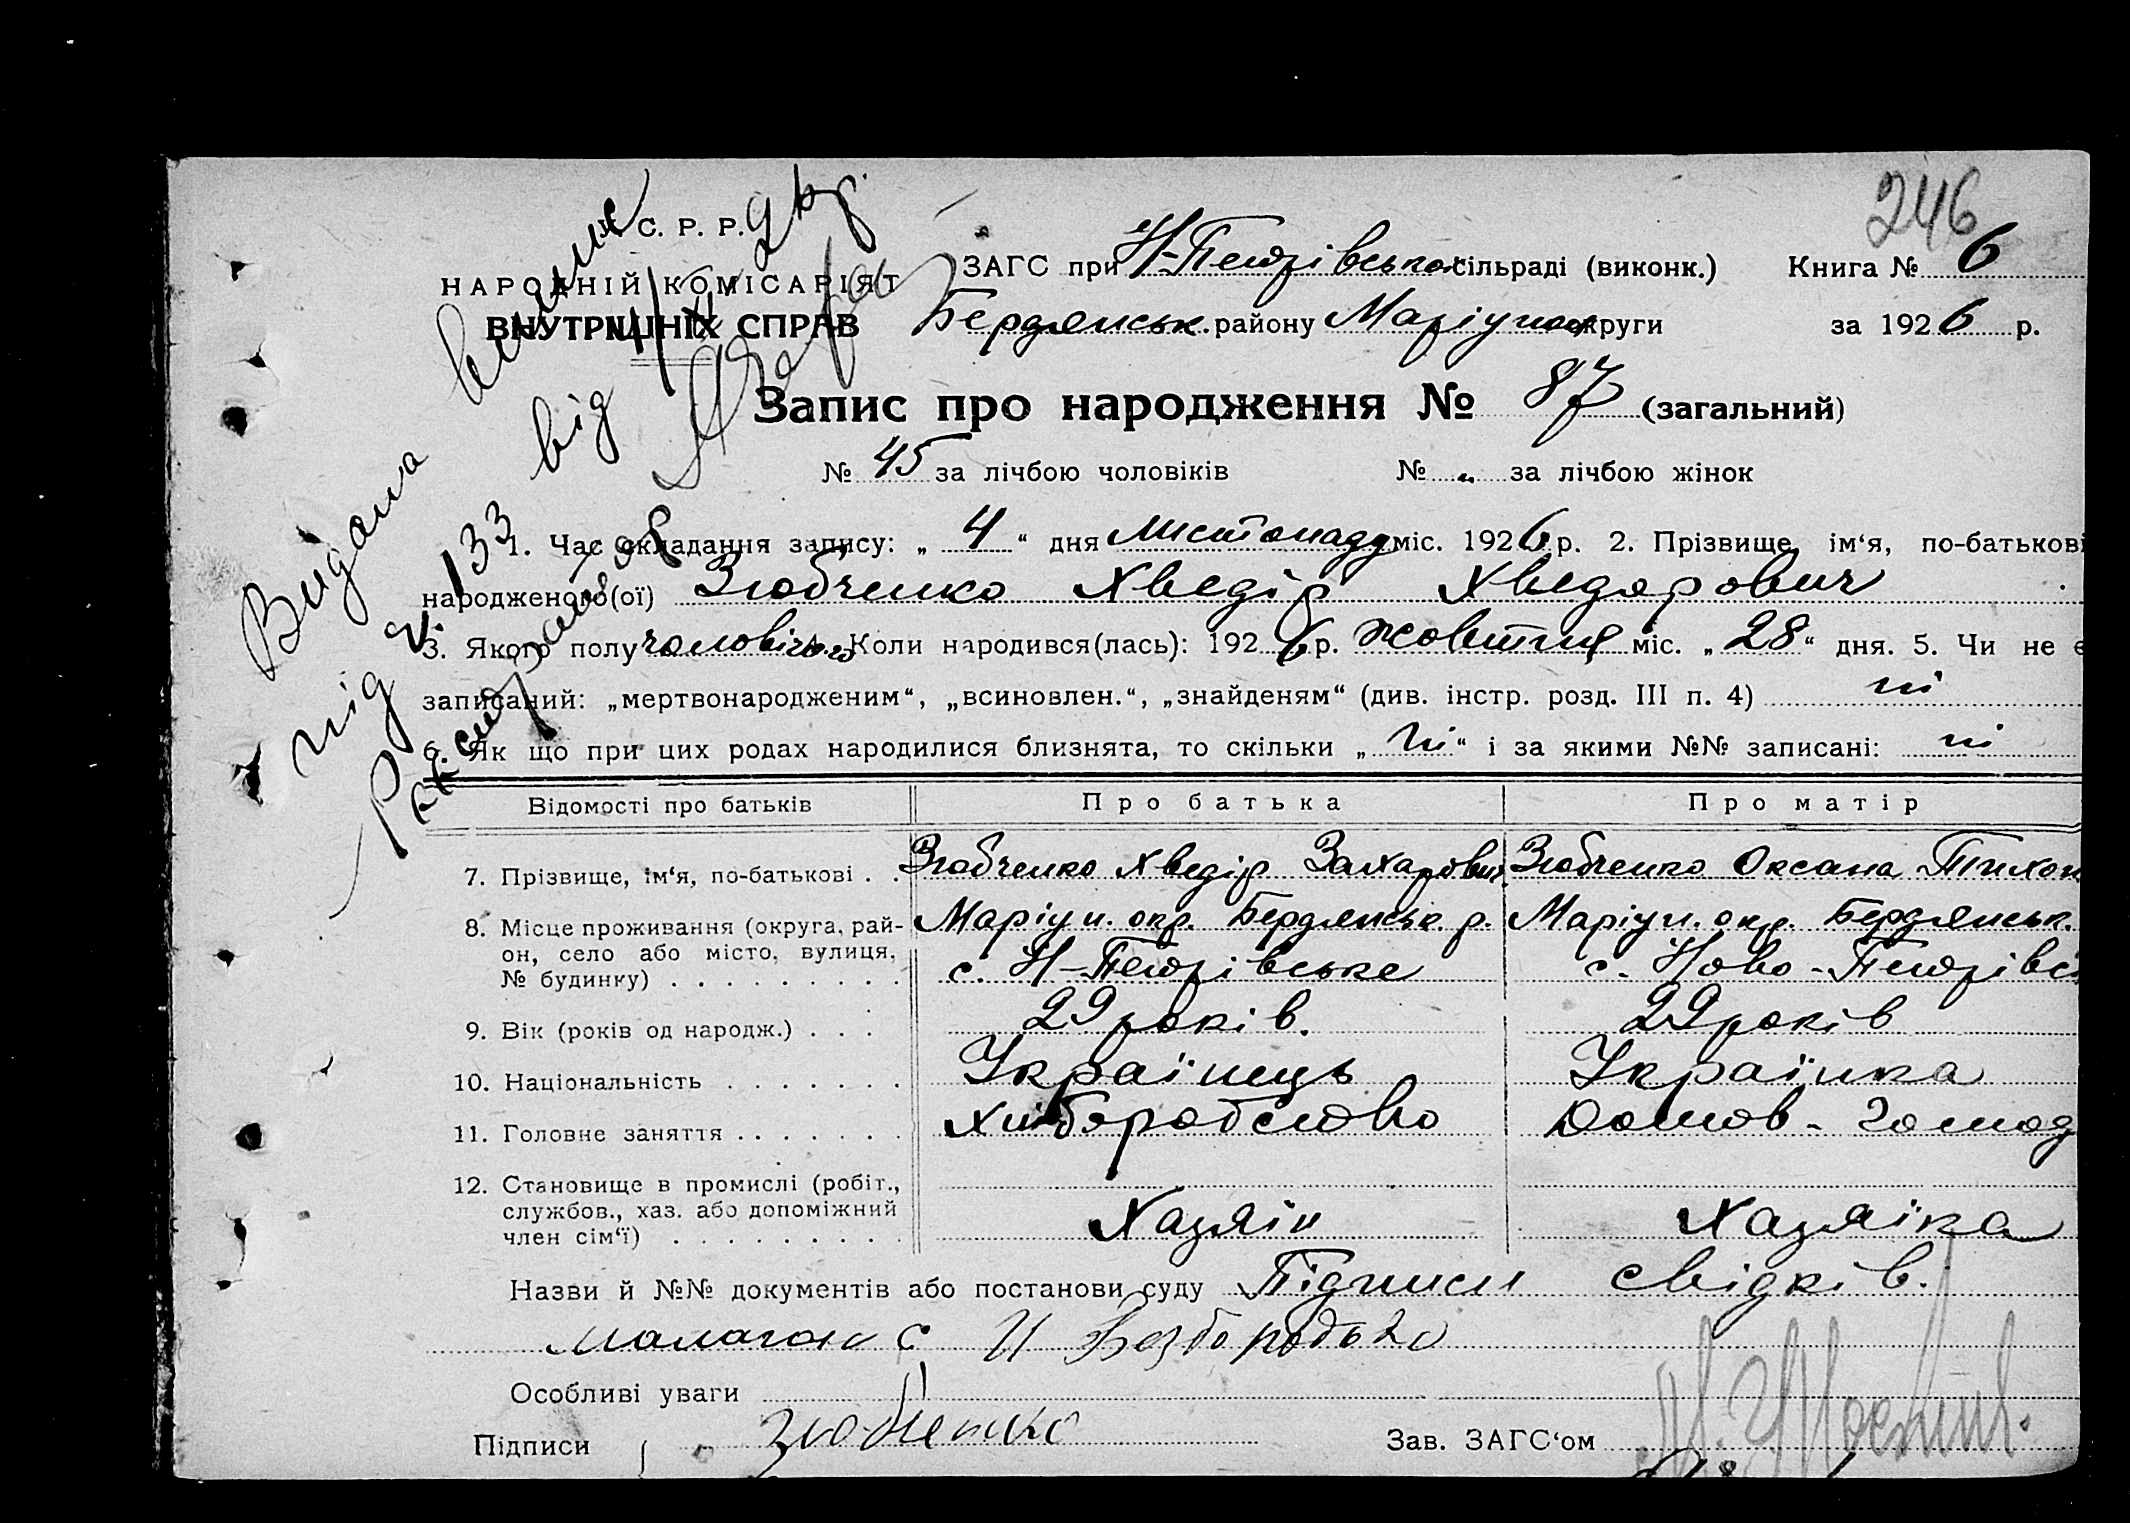 246
С. Р. Р.
НАРОДНІЙ КОМІСАРІЯТ
ВНУТРІШНІХ СПРАВ
ЗАГС при Н-Петрівській сільраді (виконк.) Книга № 6
Бердянськ. району Маріупол округи за 1926 р.
Запис про народження № 87 (загальний)
№ 45 за лічбою чоловіків № „ за лічбою жінок
Видана
під ч. 133 від
1. Час складання запису: „4“ дня листопаду міс. 1926 р. 2. Прізвище, ім‘я, по-батькові
народженого(ої) Зюбченко Хведір Хведорович
3. Якого полу чоловічого 4. Коли народився(лась): 1926 р. жовтня міс. „28“ дня. 5. Чи не є
записаний: „мертвонародженим“, „всиновлен.“, „знайденям“ (див. інстр. розд. III п. 4) ні
6. Як що при цих родах народилися близнята, то скільки „ні“ і за якими №№ записані: ні
Відомості про батьків Про батька Про матір
7. Прізвище, ім‘я, по-батькові . . Зюбченко Хведір Захарович Зюбченко Оксана Тихон
8. Місце проживання (округа, рай- Маріуп. окр. Бердянськ. р. Маріуп. окр. Бердянськ.
он, село або місто, вулиця, с. Н-Петрівське с. Ново-Петрівс
№ будинку) . . . . . . . . .
9. Вік (років од народж.) . . . 29 років. 29 років
10. Національність . . . . . . . Українець Українка
11. Головне заняття . . . . . . . Хліборобство Домов-господ
12. Становище в промислі (робіт.,
службов., хаз. або допоміжний Хазяін Хазяїка
член сім‘ї) . . . . . . . . .
Назви й №№ документів або постанови суду Підписи свідків.
И Безбородько
Особливі уваги
Підписи Зюбченко Зав. ЗАГС‘ом